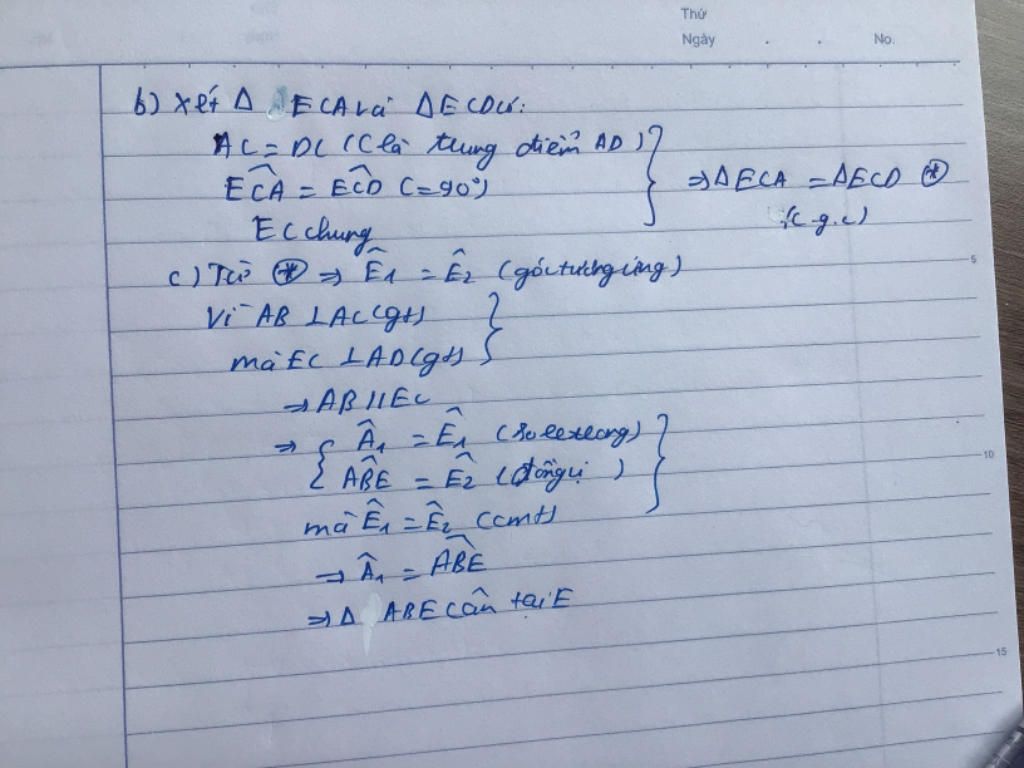 Thứ
Ngày . . No.
b) Xét Δ ECA và ΔECD có:
AC = DC (C là trung điểm AD)
ECA = ECD (=90°) ⇒ ΔECA = ΔECD (*)
EC chung (c.g.c)
c) Từ (*) ⇒ Ê1 = Ê2 (góc tương ứng)
5
Vì AB ⊥ AC (gt)
mà EC ⊥ AD (gt)
⇒ AB // EC
⇒ { Â1 = Ê1 (so le trong)
ABE = Ê2 (đồng vị)
10
mà Ê1 = Ê2 (cmt)
⇒ Â1 = ABE
⇒ Δ ABE cân tại E
15